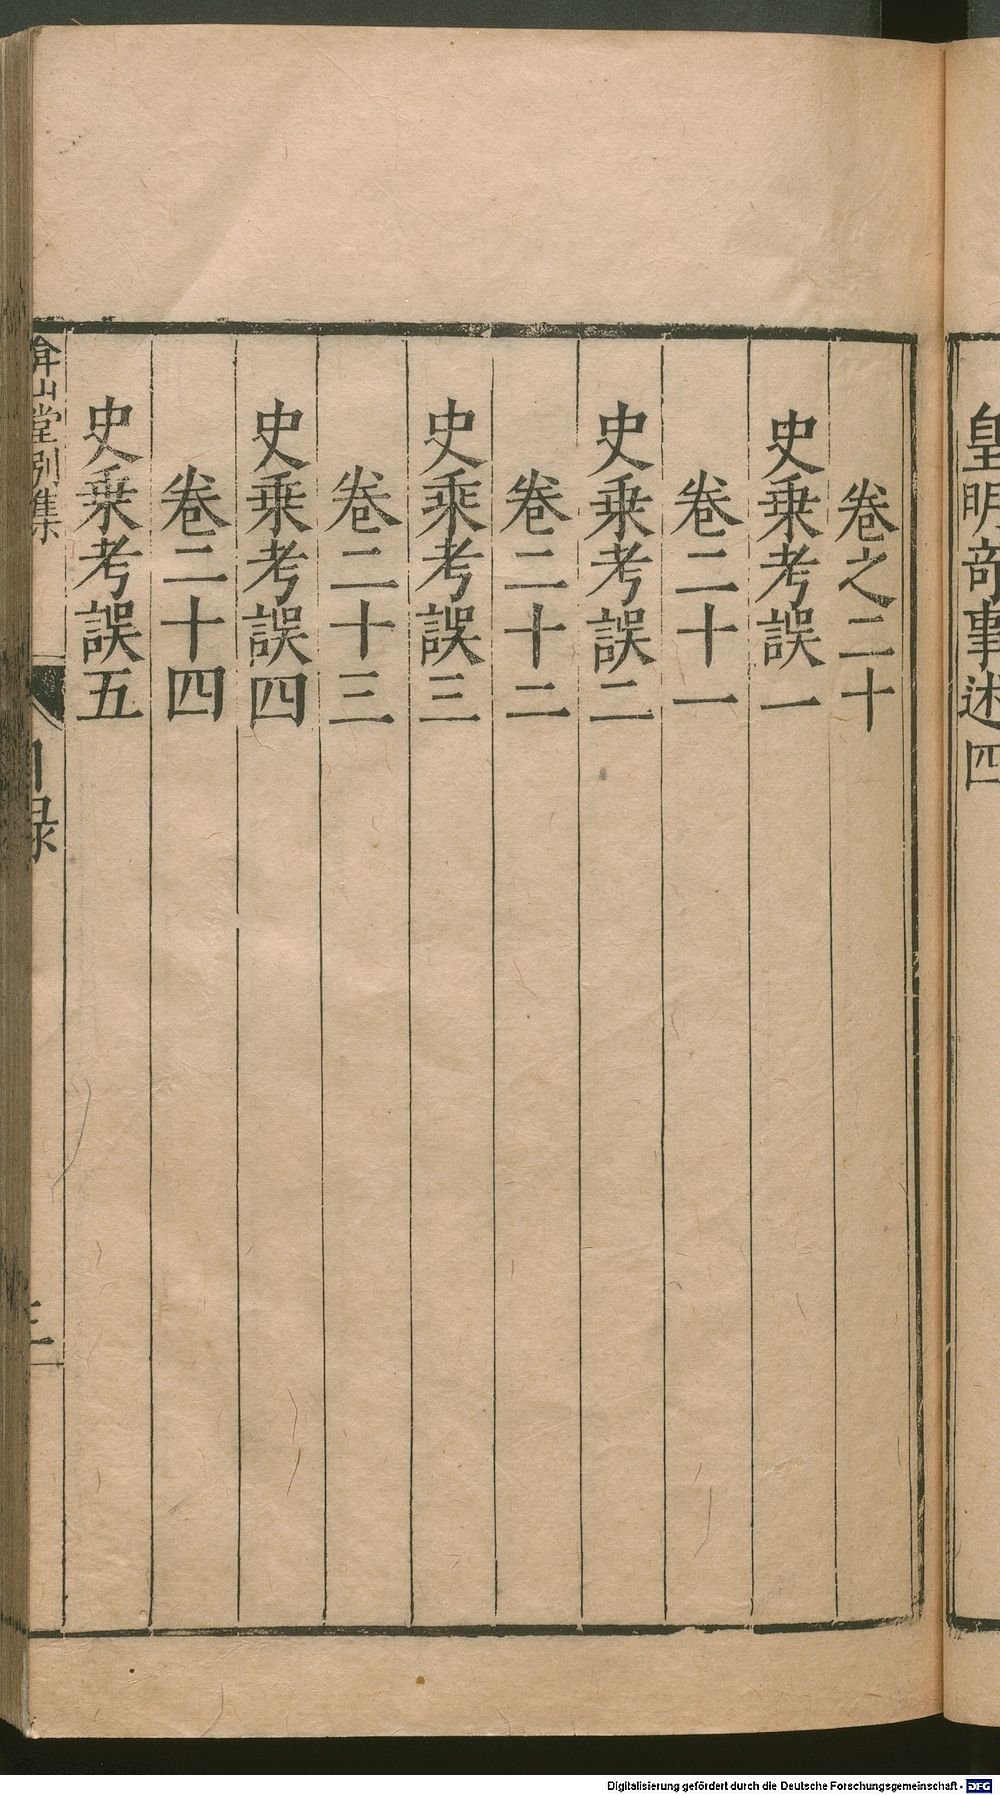 皇明奇事述四
卷之二十
史乗考誤一
卷二十一
史乗考誤二
卷二十二
史乘考誤三
卷二十三
史乗考誤四
卷二十四
史乗考誤五
弇山堂別集
目録
三
Digitalisierung gefördert durch die Deutsche Forschungsgemeinschaft - DFG